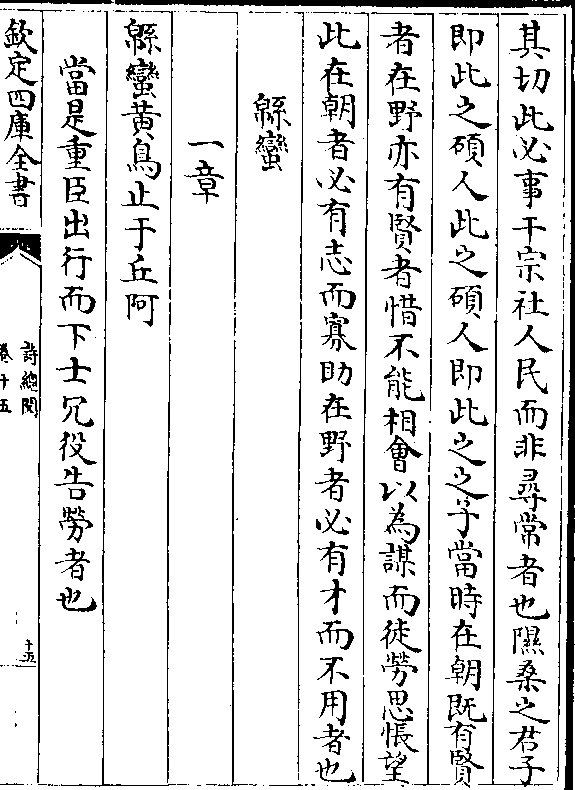 其切此必事干宗社人民而非尋常者也隰桑之君子
即此之碩人此之碩人即此之之子當時在朝既有賢
者在野亦有賢者惜不能相會以為謀而徒勞思悵望
此在朝者必有志而寡助在野者必有才而不用者也
緜蠻
一章
緜蠻黃鳥止于丘阿
當是重臣出行而下士冗役告勞者也
欽定四庫全書
詩總聞
卷十五
十五